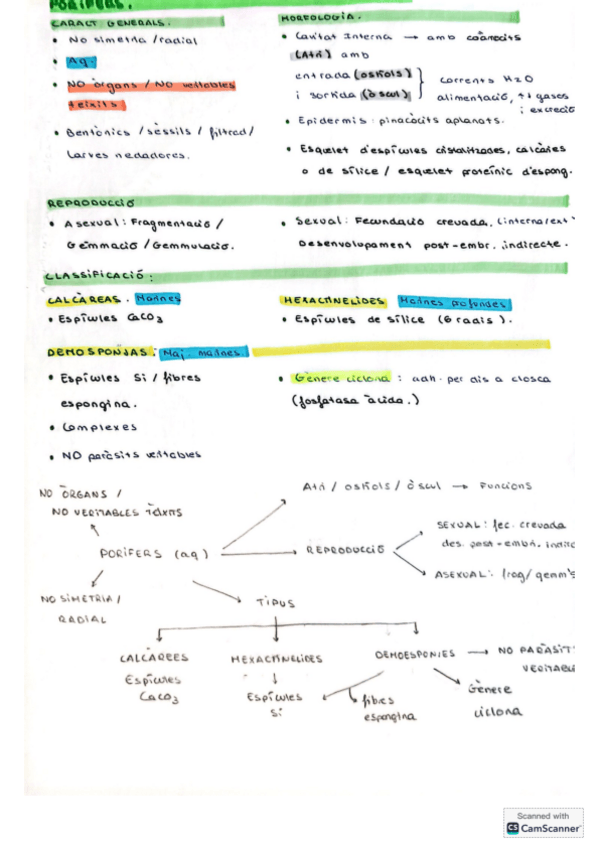 PORÍFERS.
CARACT GENERALS.
• No simetria/radial
• Aq.
• NO òrgans / NO veritables
teixits
• Bentònics / sèssils / filtrad/
Larves nedadores.
MORFOLOGIA.
• Cavitat Interna → amb coanòcits
(Atri) amb
entrada (ostiols)
i sortida (òscul)
corrents H2O
alimentació, ↑↓ gasos
i excreció
• Epidermis: pinacòcits aplanats.
• Esquelet d'espícules cristalitzades, calcàries
o de sílice / esquelet proteínic d'espong.
REPRODUCCIÓ
• Asexual: Fragmentació /
Gemmació / Gemmulació.
• Sexual: Fecundació creuada, (interna/ext
Desenvolupament post-embr. indirecte.
CLASSIFICACIÓ:
CALCÀREAS. Marines
• Espícules CaCO3
HEXACTINELIDES Marines profundes
• Espícules de sílice (6 radis).
DEMOSPONJAS: Maj. marines.
• Espícules Si / fibres
espongina.
• Complexes
• NO paràsits veritables
• Gènere ciclona: adh. per dis a closca
(fosfatasa àcida.)
NO ÒRGANS /
NO VERITABLES TEIXITS
PORÍFERS (aq)
NO SIMETRIA /
RADIAL
Atri / ostiols / òscul → Funcions
REPRODUCCIÓ
SEXUAL: fec. creuada
des. post-embri. indirec
ASEXUAL: frag/gemm's
TIPUS
CALCÀREES
Espícules
CaCO3
HEXACTINELIDES
Espícules
Si
DEMOESPONJES → NO PARÀSIT
VERITABLE
fibres
espongina
Gènere
ciclona
Scanned with
CS CamScanner